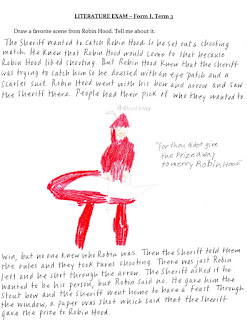 LITERATURE EXAM – Form I, Term 3
Draw a favorite scene from Robin Hood. Tell me about it.
The Sheriff wanted to catch Robin Hood so he set out a shooting
match. He knew that Robin Hood would come to that because
Robin Hood liked shooting. But Robin Hood knew that the Sheriff
was trying to catch him so he dressed with an eye patch and a
scarlet suit. Robin Hood went with his bow and arrow and saw
the Sheriff there. People had their pick of who they wanted to
"For thou didst give
the Prize away
to merry Robin Hood"
win, but no one knew who Robin was. Then the Sheriff told them
the rules and they took turns shooting. There was just Robin
left and he shot through the arrow. The Sheriff asked if he
wanted to be his person, but Robin said no. He gave him the
stout bow and the Sheriff went home to have a feast. Through
the window, a paper was shot which said that the Sheriff
gave the prize to Robin Hood.